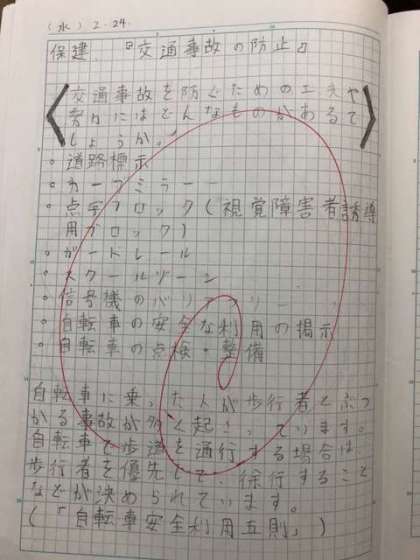 (水) 2.24.
保建 『交通事故の防止』
交通事故を防ぐための工夫や
努力にはどんなものがあるで
しょうか。
○道路標示
○カーブミラー
○点字ブロック(視覚障害者誘導
用ブロック)
○ガードレール
○スクールゾーン
○信号機のバリアフリー
○自転車の安全な利用の掲示
○自転車の点検・整備
自転車に乗った人が歩行者とぶつ
かる事故が多く起きています。
自転車で歩道を通行する場合は、
歩行者を優先して、徐行すること
などが決められています。
(「自転車安全利用五則」)